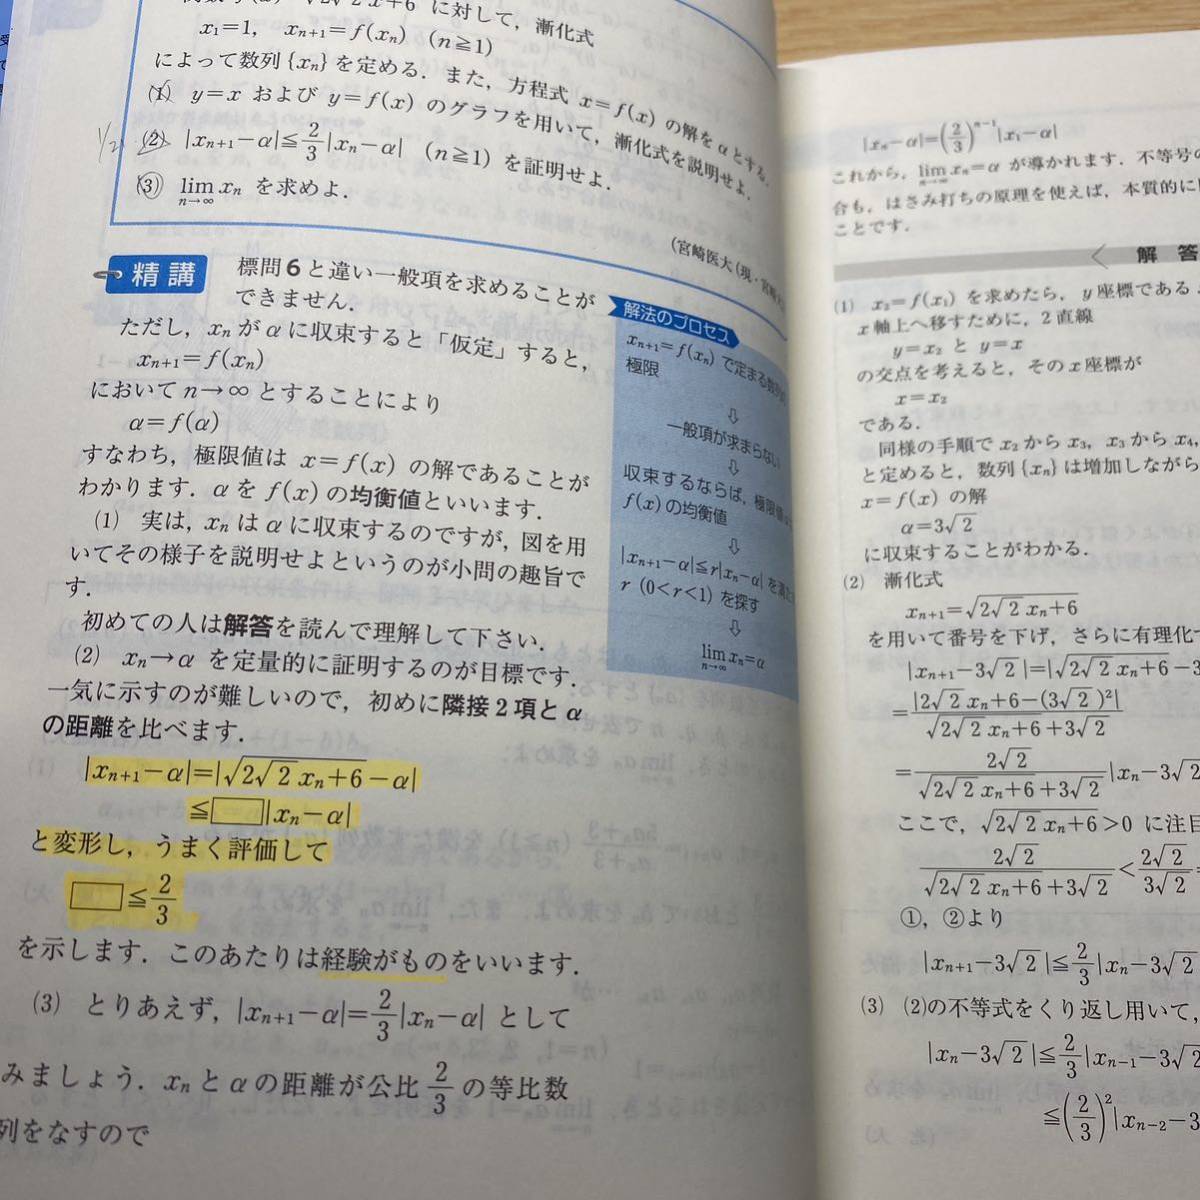 2√2x+6 に対して，漸化式
x₁=1, xₙ₊₁=f(xₙ) (n≧1)
によって数列{xₙ}を定める．また，方程式 x=f(x) の解をαとする．
(1) y=x および y=f(x) のグラフを用いて，漸化式を説明せよ．
1/2 (2) |xₙ₊₁−α|≦2/3|xₙ−α| (n≧1) を証明せよ．
(3) lim n→∞ xₙ を求めよ．
(宮崎医大(現・宮崎大))
精講
標問6と違い一般項を求めることが
できません．
ただし，xₙがαに収束すると「仮定」すると，
xₙ₊₁=f(xₙ)
において n→∞ とすることにより
α=f(α)
すなわち，極限値は x=f(x) の解であることが
わかります．αを f(x) の均衡値といいます．
(1) 実は，xₙはαに収束するのですが，図を用
いてその様子を説明せよというのが小問の趣旨で
す．
初めての人は解答を読んで理解して下さい．
(2) xₙ→α を定量的に証明するのが目標です．
一気に示すのが難しいので，初めに隣接2項とα
の距離を比べます．
|xₙ₊₁−α|=|√(2√2xₙ+6)−α|
≦□|xₙ−α|
と変形し，うまく評価して
□≦2/3
を示します．このあたりは経験がものをいいます．
(3) とりあえず，|xₙ₊₁−α|=2/3|xₙ−α| として
みましょう．xₙとαの距離が公比 2/3 の等比数
列をなすので
解法のプロセス
xₙ₊₁=f(xₙ) で定まる数列の
極限
⇩
一般項が求まらない
⇩
収束するならば，極限値は
f(x)の均衡値
⇩
|xₙ₊₁−α|≦r|xₙ−α| を満た
r (0<r<1) を探す
⇩
lim n→∞ xₙ=α
|xₙ−α|=(2/3)ⁿ⁻¹|x₁−α|
これから，lim n→∞ xₙ=α が導かれます．不等号の
合も，はさみ打ちの原理を使えば，本質的に
ことです．
解答
(1) x₂=f(x₁) を求めたら，y座標である
x軸上へ移すために，2直線
y=x₂ と y=x
の交点を考えると，そのx座標が
x=x₂
である．
同様の手順で x₂ から x₃, x₃ から x₄,
と定めると，数列{xₙ}は増加しながら
x=f(x) の解
α=3√2
に収束することがわかる．
(2) 漸化式
xₙ₊₁=√(2√2xₙ+6)
を用いて番号を下げ，さらに有理化
|xₙ₊₁−3√2|=|√(2√2xₙ+6)−3
=|2√2xₙ+6−(3√2)²|/(√(2√2xₙ+6)+3√2)
=2√2/(√(2√2xₙ+6)+3√2)|xₙ−3√2
ここで，√(2√2xₙ+6)>0 に注目
2√2/(√(2√2xₙ+6)+3√2)<2√2/3√2=
①，②より
|xₙ₊₁−3√2|≦2/3|xₙ−3√2
(3) (2)の不等式をくり返し用いて，
|xₙ−3√2|≦2/3|xₙ₋₁−3√2
≦(2/3)²|xₙ₋₂−3